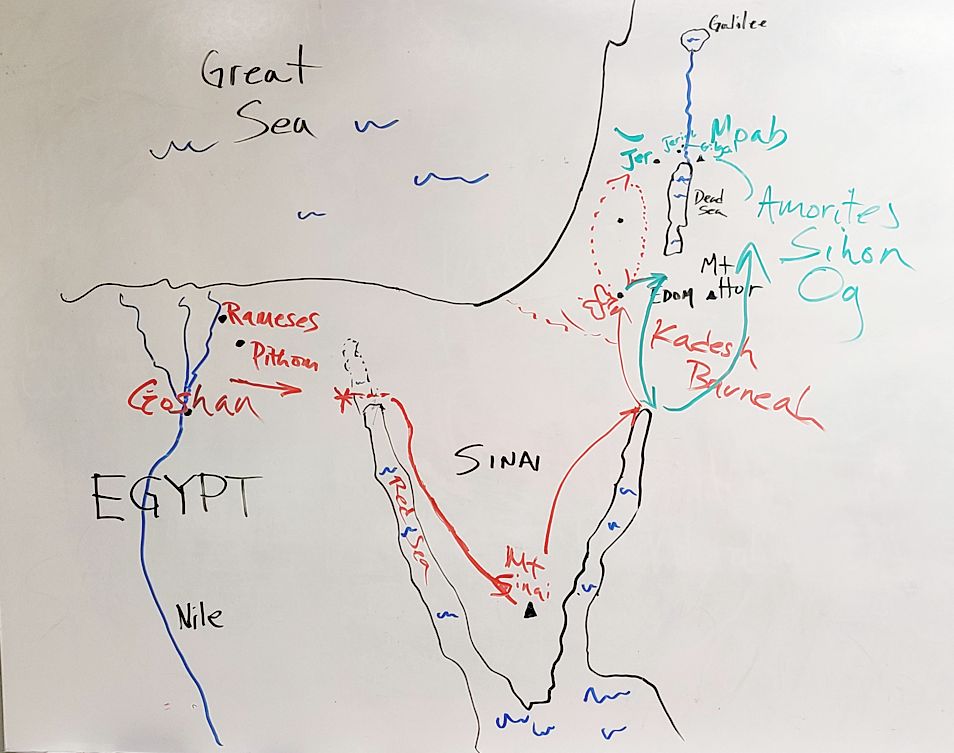 Great
Sea
Galilee
Moab
Jer.
Dead
Sea
Amorites
Sihon
Og
Mt
Hor
EDOM
Kadesh
Barneah
Rameses
Pithom
Goshan
EGYPT
Nile
Red Sea
SINAI
Mt
Sinai